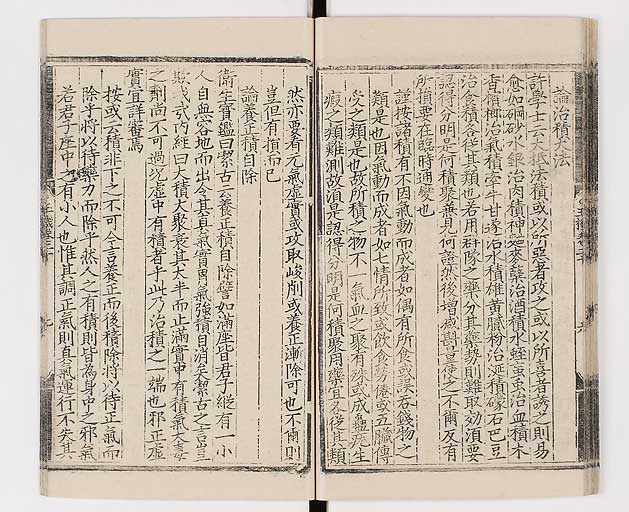 論治積大法
許學士云大抵治積或以所惡者攻之或以所喜者誘之則易
愈如硇砂水銀治肉積神麴麥蘖治酒積水蛭䖟虫治血積木
香檳榔治氣積牽牛甘遂治水積雄黃膩粉治涎積礞石巴豆
治食積各從其類也若用群隊之藥分其藥勢則難取効須要
認得分明是何積聚兼見何證然後增減斟量使之不爾反有
所損要在臨時通變也
謹按諸積有不因氣動而成者如偶有所食或誤吞錢物之
類是也因氣動而成者如七情所致或飲食勞倦或五臟傳
受之類是也故所積之物不一氣血之聚有殊或成蟲
瘕之類難測故須是認得分明是何積聚用藥宜各從其類
然亦要看元氣虛實或攻取峻削或養正漸除可也不爾則
豈但有損而已
論養正積自除
衛生寶鑑曰潔古云養正積自除譬如滿座皆君子縱有一小
人自無容地而出令其真氣實胃氣強積自消矣潔古之言豈
欺我哉內經曰大積大聚衰其大半而止滿實中有積氣大毒
之劑尚不可過况虛中有積者乎此乃治積之一端也邪正虛
實宜詳審焉
按或云積非下之不可今言養正而後積除將以待正氣而
除乎將以待藥力而除乎然人之有積則皆為身中之邪氣
若君子座中之有小人也惟其調正氣則真氣運行不失其